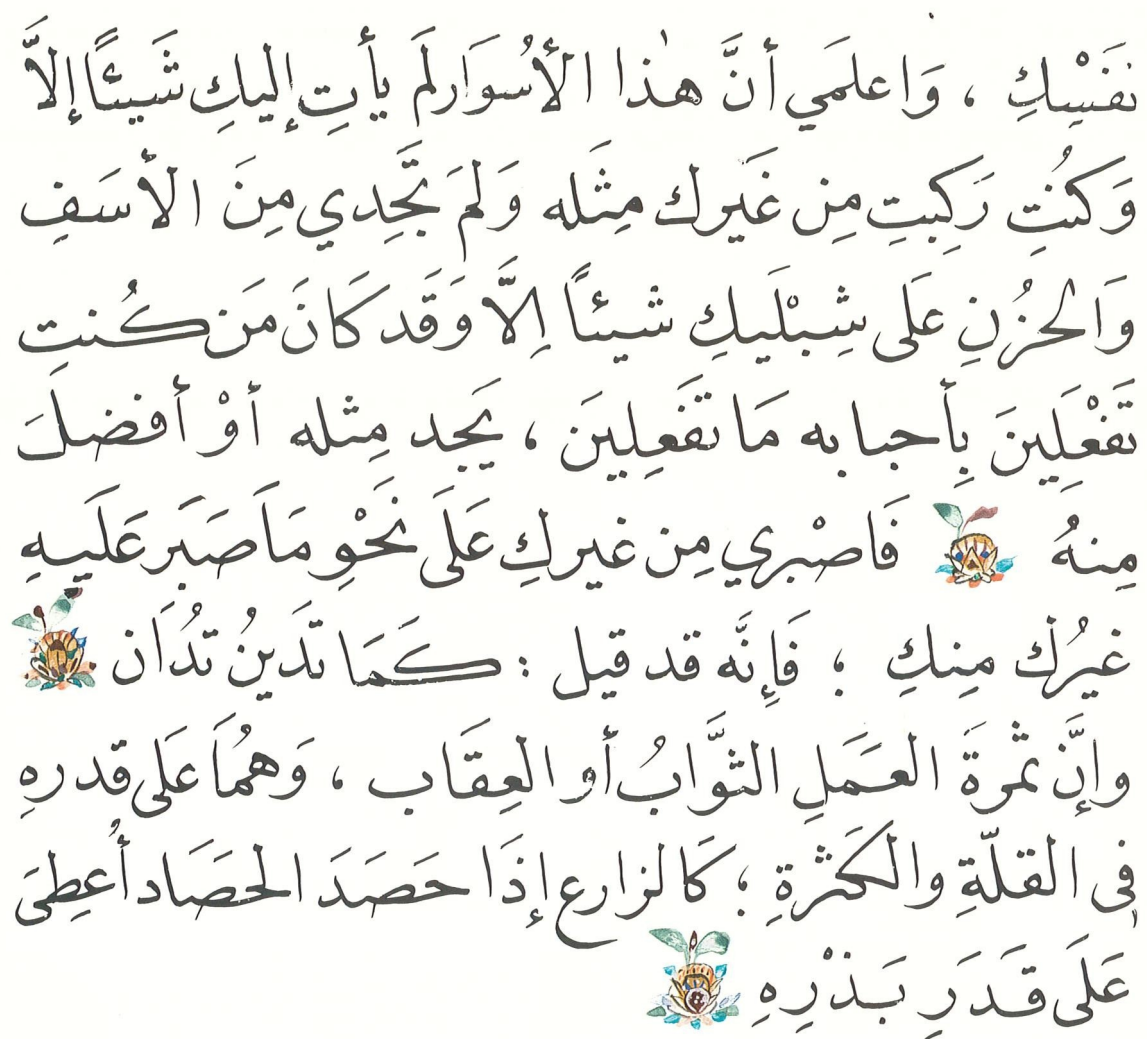 نَفَسْكِ ، وَاعلَمَي أنَّ هٰذا الأُسوَار لَم يأتِ إليكِ شَيئًا إلاَّ
وَكنُتِ رَكِبتِ مِن غَيرك مِثَله وَلمَ تَّجِدي مِنَ الأسَفِ
وَالحُزنِ عَلى شِبْلَيكِ شيئاً اِلاَّ وَقَد كَانَ مَن كُنتِ
تَفْعَلِينَ بِأحبابه مَا تَفعِلينَ ، يَجد مِثله أوْ أفضلَ
مِنهُ فَاصْبري مِن غيركِ عَلىَ نَحْوِ مَا صَبَر عَلَيهِ
غيرُك مِنكِ ؛ فَإِنَّه قد قيل : كَمَا تَدينُ تُدَان
وإنَّ ثمرةَ العَمَلِ الثوَّابُ أو العِقَاب ، وَهمُا عَلى قدرهِ
فى القلّةِ والكَثرةِ ؛ كَالزارع إذَا حَصَدَ الحَصَاد أُعطِىَ
عَلَى قَدَرِ بَذْرِهِ